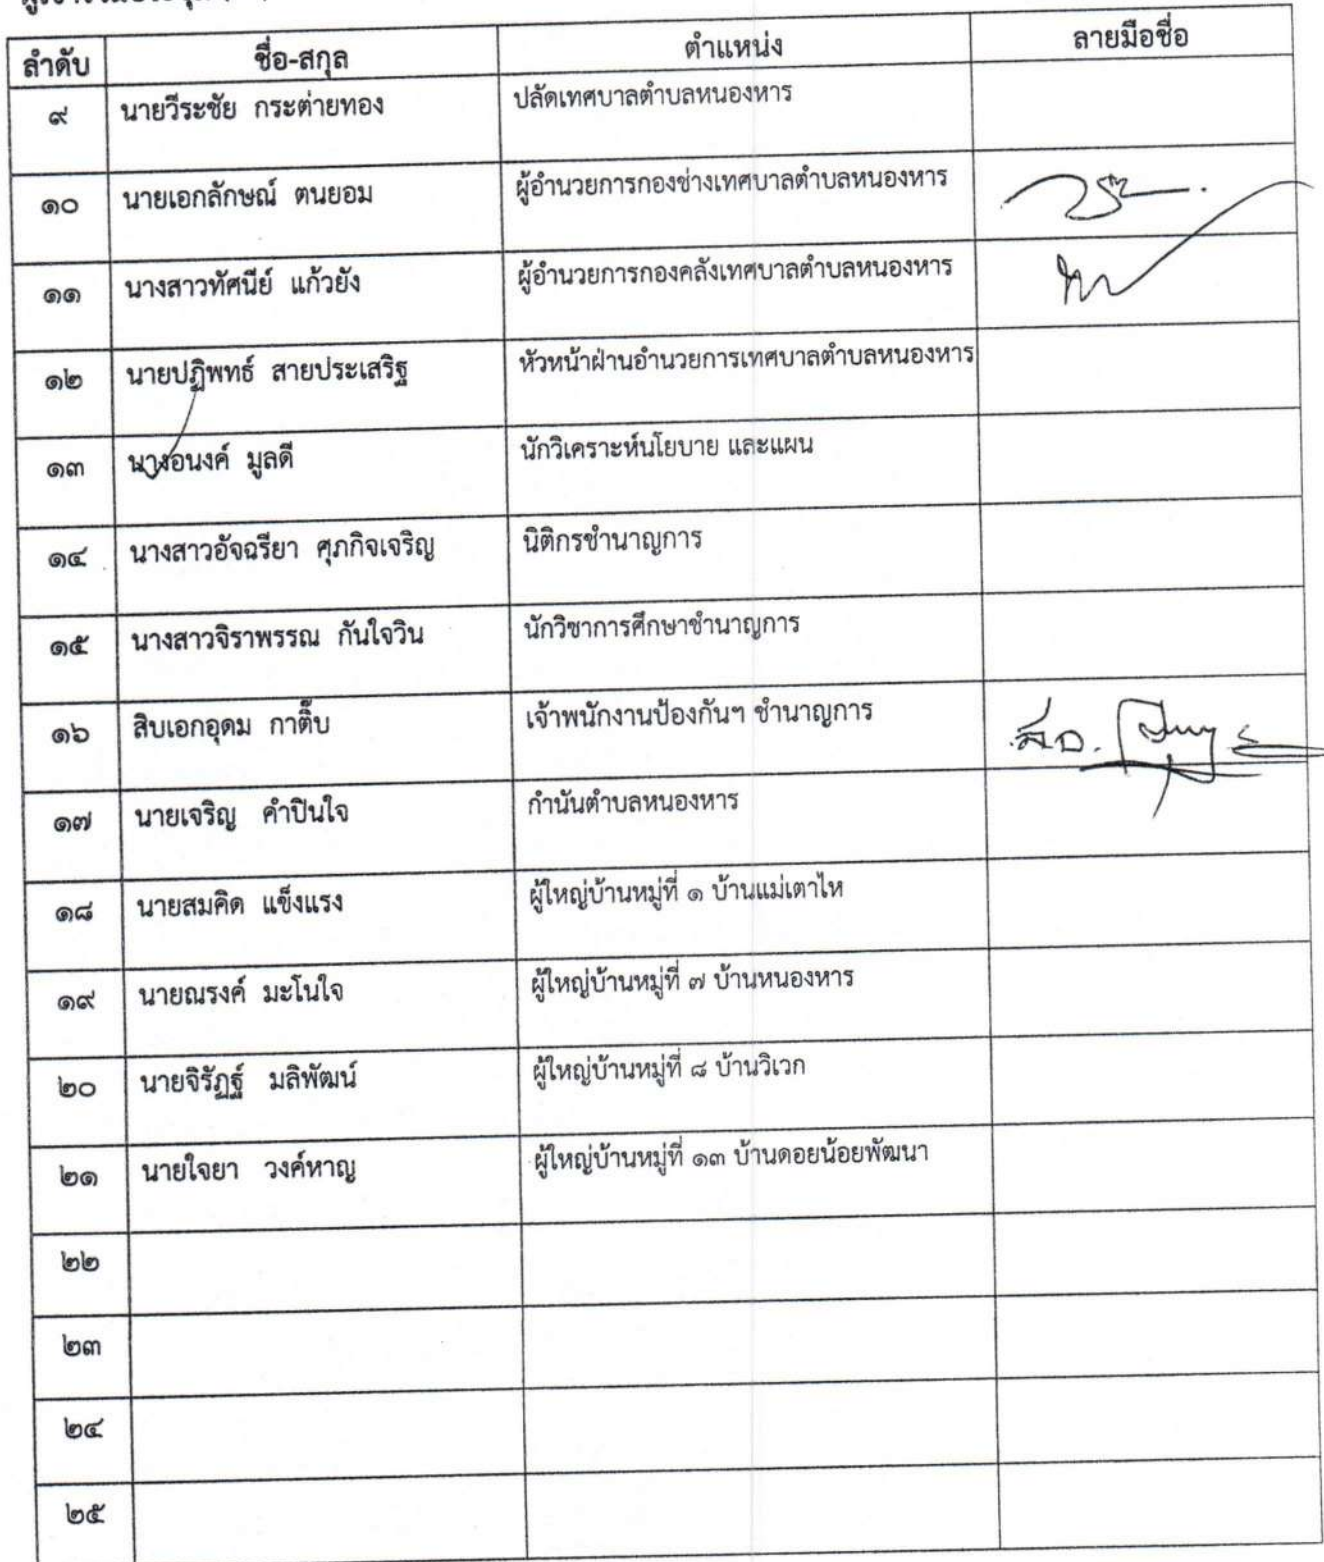 ลำดับ ชื่อ-สกุล ตำแหน่ง ลายมือชื่อ
๙ นายวีระชัย กระต่ายทอง ปลัดเทศบาลตำบลหนองหาร
๑๐ นายเอกลักษณ์ ตนยอม ผู้อำนวยการกองช่างเทศบาลตำบลหนองหาร
๑๑ นางสาวทัศนีย์ แก้วยัง ผู้อำนวยการกองคลังเทศบาลตำบลหนองหาร
๑๒ นายปฏิพทธ์ สายประเสริฐ หัวหน้าฝ่านอำนวยการเทศบาลตำบลหนองหาร
๑๓ นางอนงค์ มูลดี นักวิเคราะห์นโยบาย และแผน
๑๔ นางสาวอัจฉรียา ศุภกิจเจริญ นิติกรชำนาญการ
๑๕ นางสาวจิราพรรณ กันใจวิน นักวิชาการศึกษาชำนาญการ
๑๖ สิบเอกอุดม กาติ๊บ เจ้าพนักงานป้องกันฯ ชำนาญการ ส.อ.
๑๗ นายเจริญ คำปินใจ กำนันตำบลหนองหาร
๑๘ นายสมคิด แข็งแรง ผู้ใหญ่บ้านหมู่ที่ ๑ บ้านแม่เตาไห
๑๙ นายณรงค์ มะโนใจ ผู้ใหญ่บ้านหมู่ที่ ๗ บ้านหนองหาร
๒๐ นายจิรัฏฐ์ มลิพัฒน์ ผู้ใหญ่บ้านหมู่ที่ ๘ บ้านวิเวก
๒๑ นายใจยา วงค์หาญ ผู้ใหญ่บ้านหมู่ที่ ๑๓ บ้านดอยน้อยพัฒนา
๒๒
๒๓
๒๔
๒๕